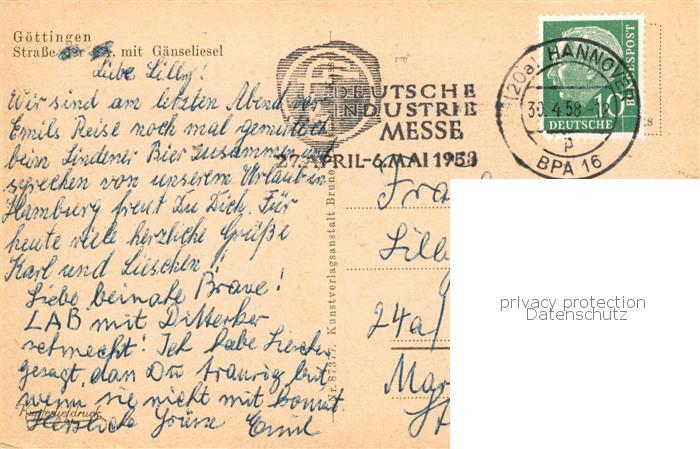 Göttingen
Straße der mit Gänseliesel
Liebe Lilly!
Wir sind am letzten Abend vor
Emils Reise noch mal gemütlich
beim Lindener Bier zusammen und
sprechen von unserem Urlaub in
Hamburg freut Du Dich. Für
heute viele herzliche Grüße
Karl und Lieschen!
Liebe beinahe Braue!
LAB mit
schmeckt! Ich habe Lieschen
gesagt, dan Du traurig bist
wenn sie nicht mit kommt.
Herzliche Grüsse Emil
Kupfertiefdruck
Nr. 87377. Kunstverlagsanstalt Bruno
DEUTSCHE
INDUSTRIE
MESSE
27. APRIL-6. MAI 1958
(20a) HANNOVER
30.4.58
p
BPA 16
10
DEUTSCHE
BUNDESPOST
Frau
Lilly
24a/
privacy protection
Datenschutz